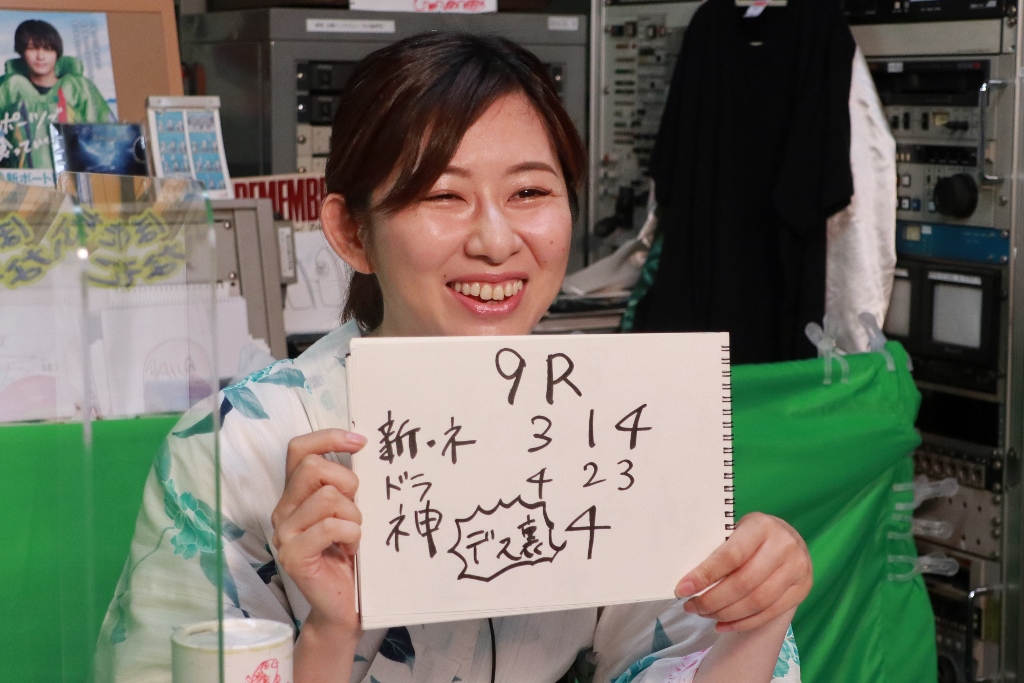 REMEMB
9R
新・ネ 3 1 4
ドラ 4 2 3
神 デス裏 4